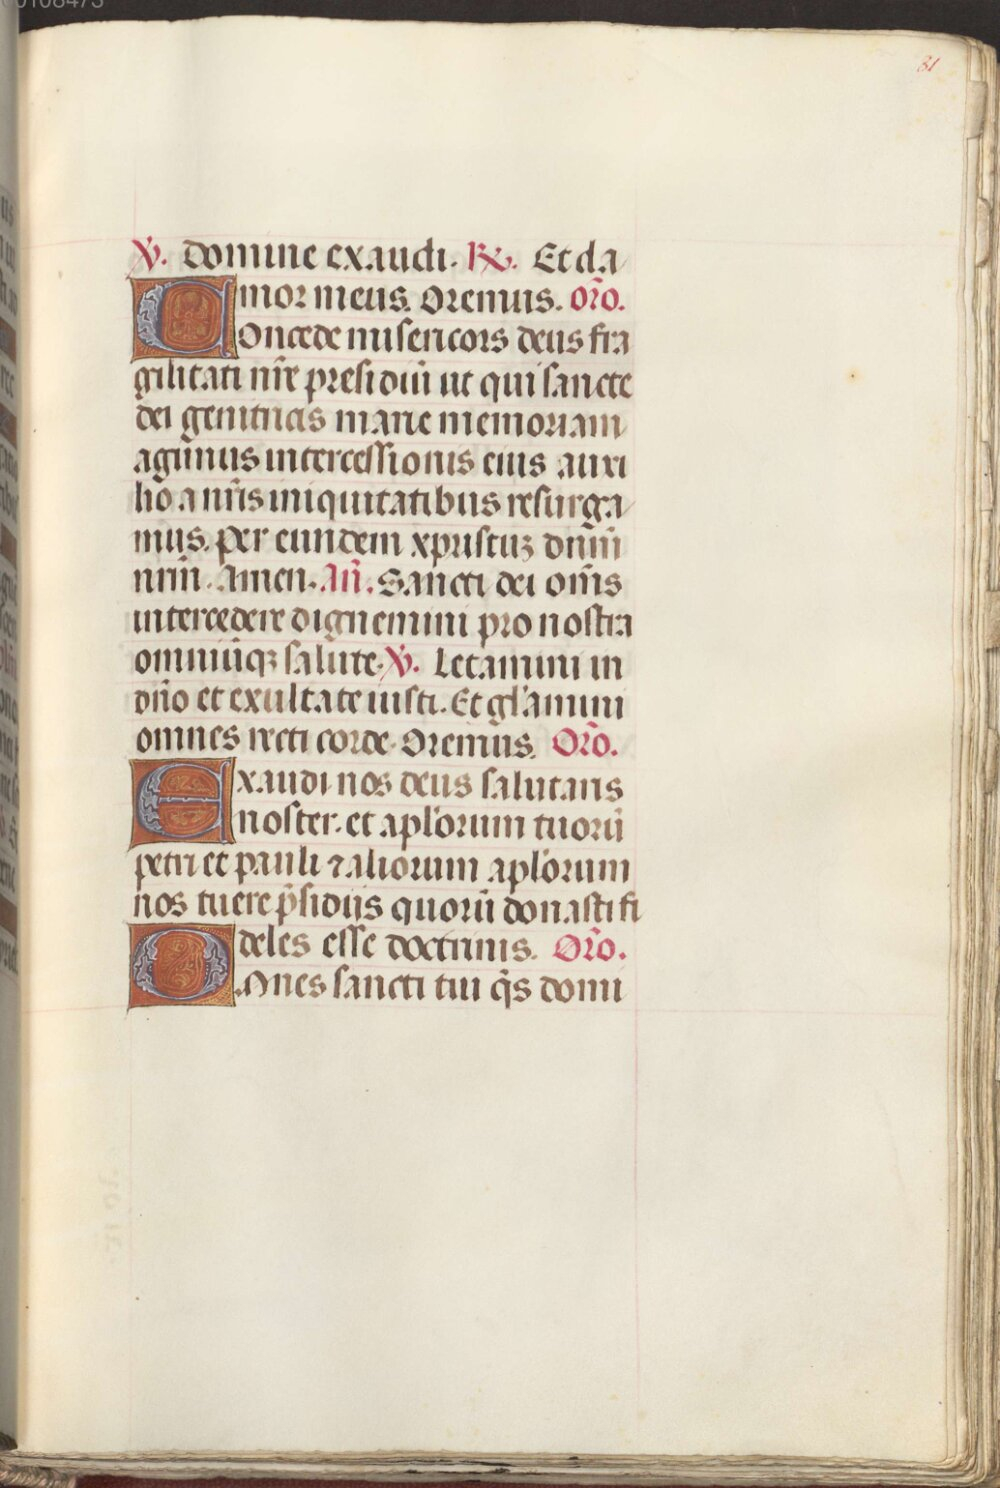 00108473
81
V̇. Domine exaudi. R̷. Et cla
mor meus. Oremus. Or̃o.
Concede misericors deus fra
gilitati nr̃e presidiũ ut qui sancte
dei genitricis marie memoriam
agimus intercessionis eius auxi
lio a nr̃is iniquitatibus resurga
mus. Per eundem xpristuꝫ dnũ
nrm̃. Amen. Añ. Sancti dei om̃s
intercedere dignemini pro nostra
omniũqꝫ salute. V̇. Letamini in
dño et exultate iusti. Et gl'amini
omnes recti corde. Oremus. Or̃o.
Exaudi nos deus salutaris
noster. et apl'orum tuorũ
petri et pauli ⁊ aliorum apl'orum
nos tuere p̃sidiis quorũ donasti fi
deles esse doctrinis. Or̃o.
Om̃nes sancti tui q̃s domi